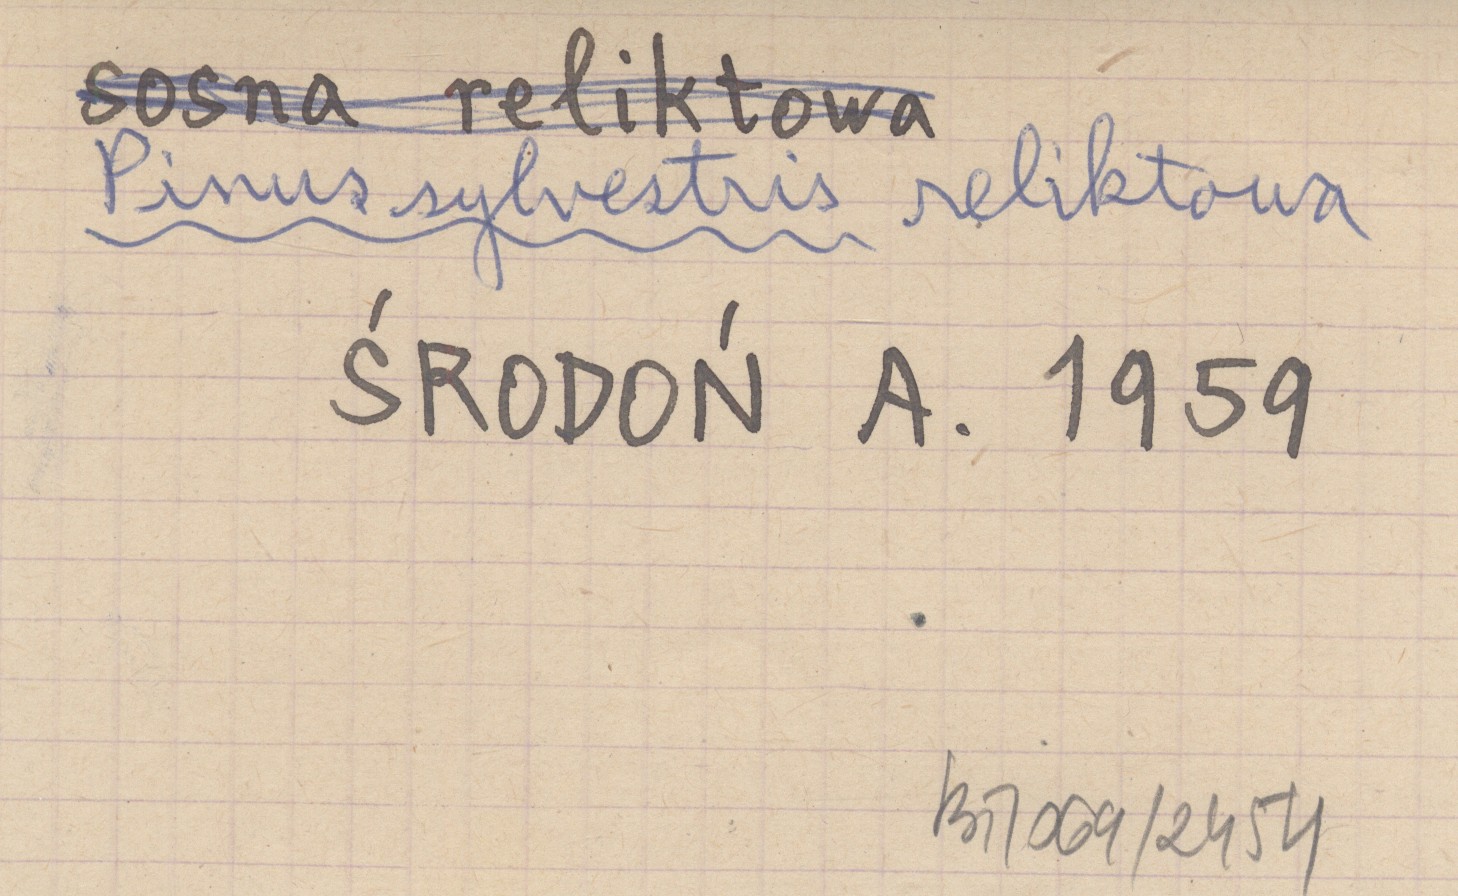 sosna reliktowa
Pinus sylvestris reliktowa
ŚRODOŃ A. 1959